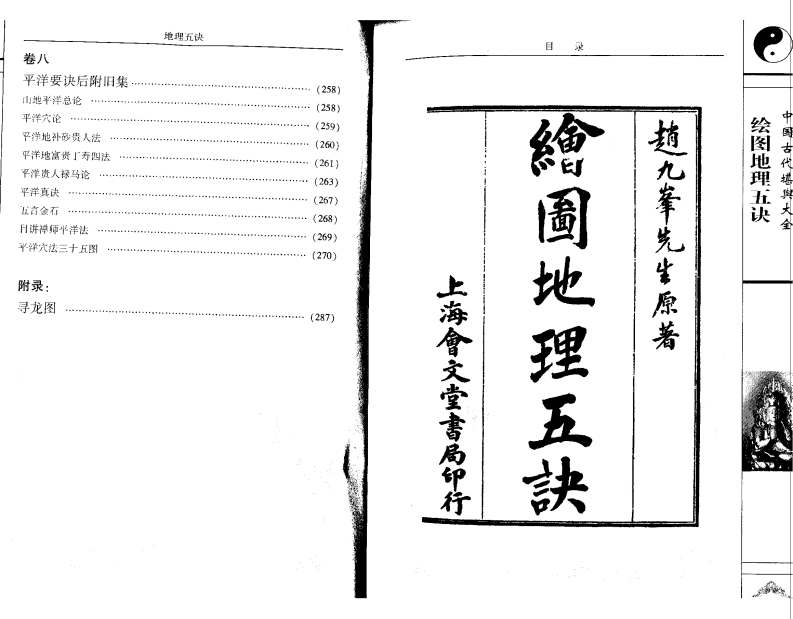 地理五诀
卷八
平洋要诀后附旧集 (258)
山地平洋总论 (258)
平洋穴论 (259)
平洋地补砂贵人法 (260)
平洋地富贵丁寿四法 (261)
平洋贵人禄马论 (263)
平洋真诀 (267)
五言金石 (268)
目讲禅师平洋法 (269)
平洋穴法三十五图 (270)
附录：
寻龙图 (287)
目 录
趙九峯先生原著
繪圖地理五訣
上海會文堂書局印行
中国古代堪舆大全
绘图地理五诀